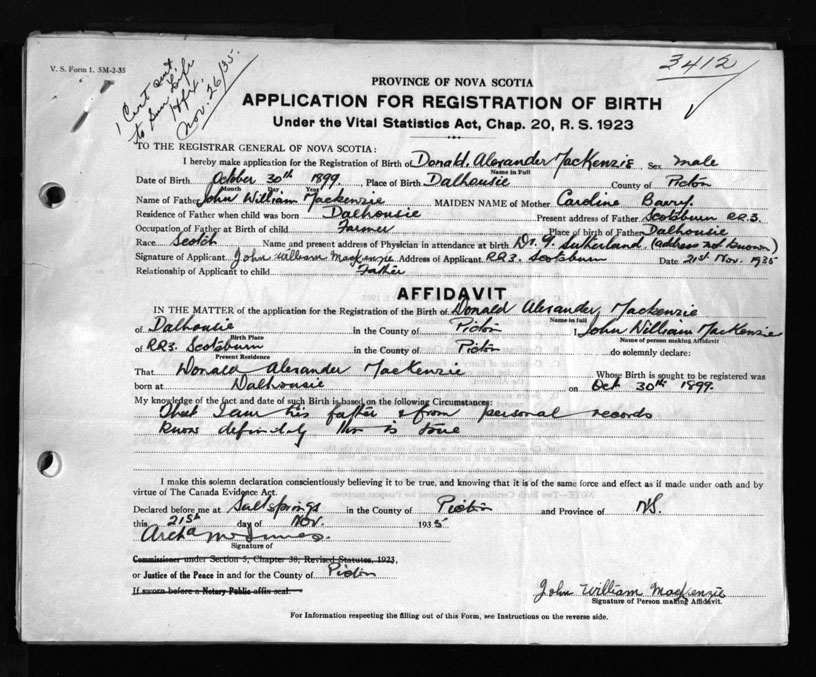 V. S. Form 1. 5M-2-35
1 Cert sent
to Sun Life
Hfx.
Nov. 26/35.
3412
PROVINCE OF NOVA SCOTIA
APPLICATION FOR REGISTRATION OF BIRTH
Under the Vital Statistics Act, Chap. 20, R. S. 1923
TO THE REGISTRAR GENERAL OF NOVA SCOTIA:
I hereby make application for the Registration of Birth of Donald Alexander MacKenzie, Sex male
Name in Full
Date of Birth October 30th 1899. Place of Birth Dalhousie County of Pictou
Month Day Year
Name of Father John William Mackenzie MAIDEN NAME of Mother Caroline Barry.
Residence of Father when child was born Dalhousie Present address of Father Scotsburn RR3.
Occupation of Father at Birth of child Farmer Place of birth of Father Dalhousie
Race Scotch Name and present address of Physician in attendance at birth Dr. Sutherland (address not known)
Signature of Applicant John William MacKenzie Address of Applicant RR3. Scotsburn Date 21st Nov. 1935
Relationship of Applicant to child Father
AFFIDAVIT
IN THE MATTER of the application for the Registration of the Birth of Donald Alexander Mackenzie
Name in full
of Dalhousie in the County of Pictou I, John William MacKenzie
Birth Place Name of person making Affidavit
of RR3. Scotsburn in the County of Pictou do solemnly declare:
Present Residence
That Donald Alexander MacKenzie Whose Birth is sought to be registered was
born at Dalhousie on Oct 30th 1899.
My knowledge of the fact and date of such Birth is based on the following Circumstances:
That I am his father & from personal records
know definitely this is true
I make this solemn declaration conscientiously believing it to be true, and knowing that it is of the same force and effect as if made under oath and by
virtue of The Canada Evidence Act.
Declared before me at Saltsprings in the County of Pictou and Province of N.S.
this 21st day of Nov. 1935
Archd McInnes.
Signature of
Commissioner under Section 5, Chapter 38, Revised Statutes, 1923,
or Justice of the Peace in and for the County of Pictou
If sworn before a Notary Public affix seal.
John William MacKenzie
Signature of Person making Affidavit.
For Information respecting the filling out of this Form, see Instructions on the reverse side.